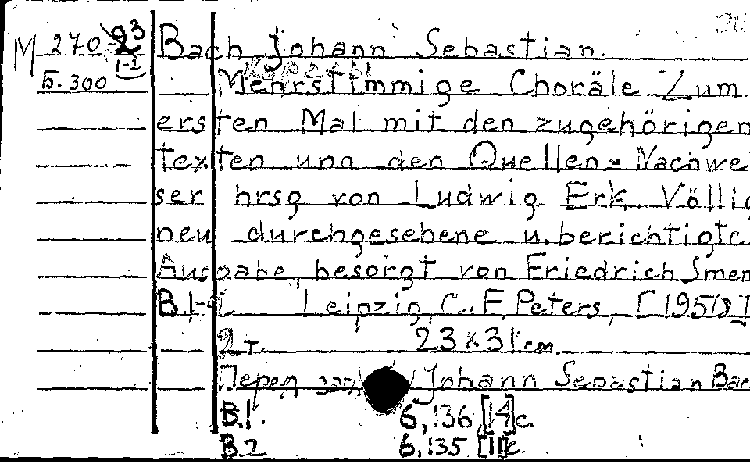 M 270 23 Bach Johann Sebastian.
1-2
Б. 300 Mehrstimmige Choräle Zum
ersten Mal mit den zugehörigen
Texten und den Quellen-Nachwei
ser hrsg von Ludwig Erk. Völlig
neu durchgesehene u. berichtigte
Ausgabe besorgt von Friedrich Smen
B.1-2 Leipzig C. F. Peters, [195/8]
2 т. 23 x 31 cm.
Перед Johann Sebastian Bac
B.1. 6, 136 [14] c.
B.2 6, 135 [11] c